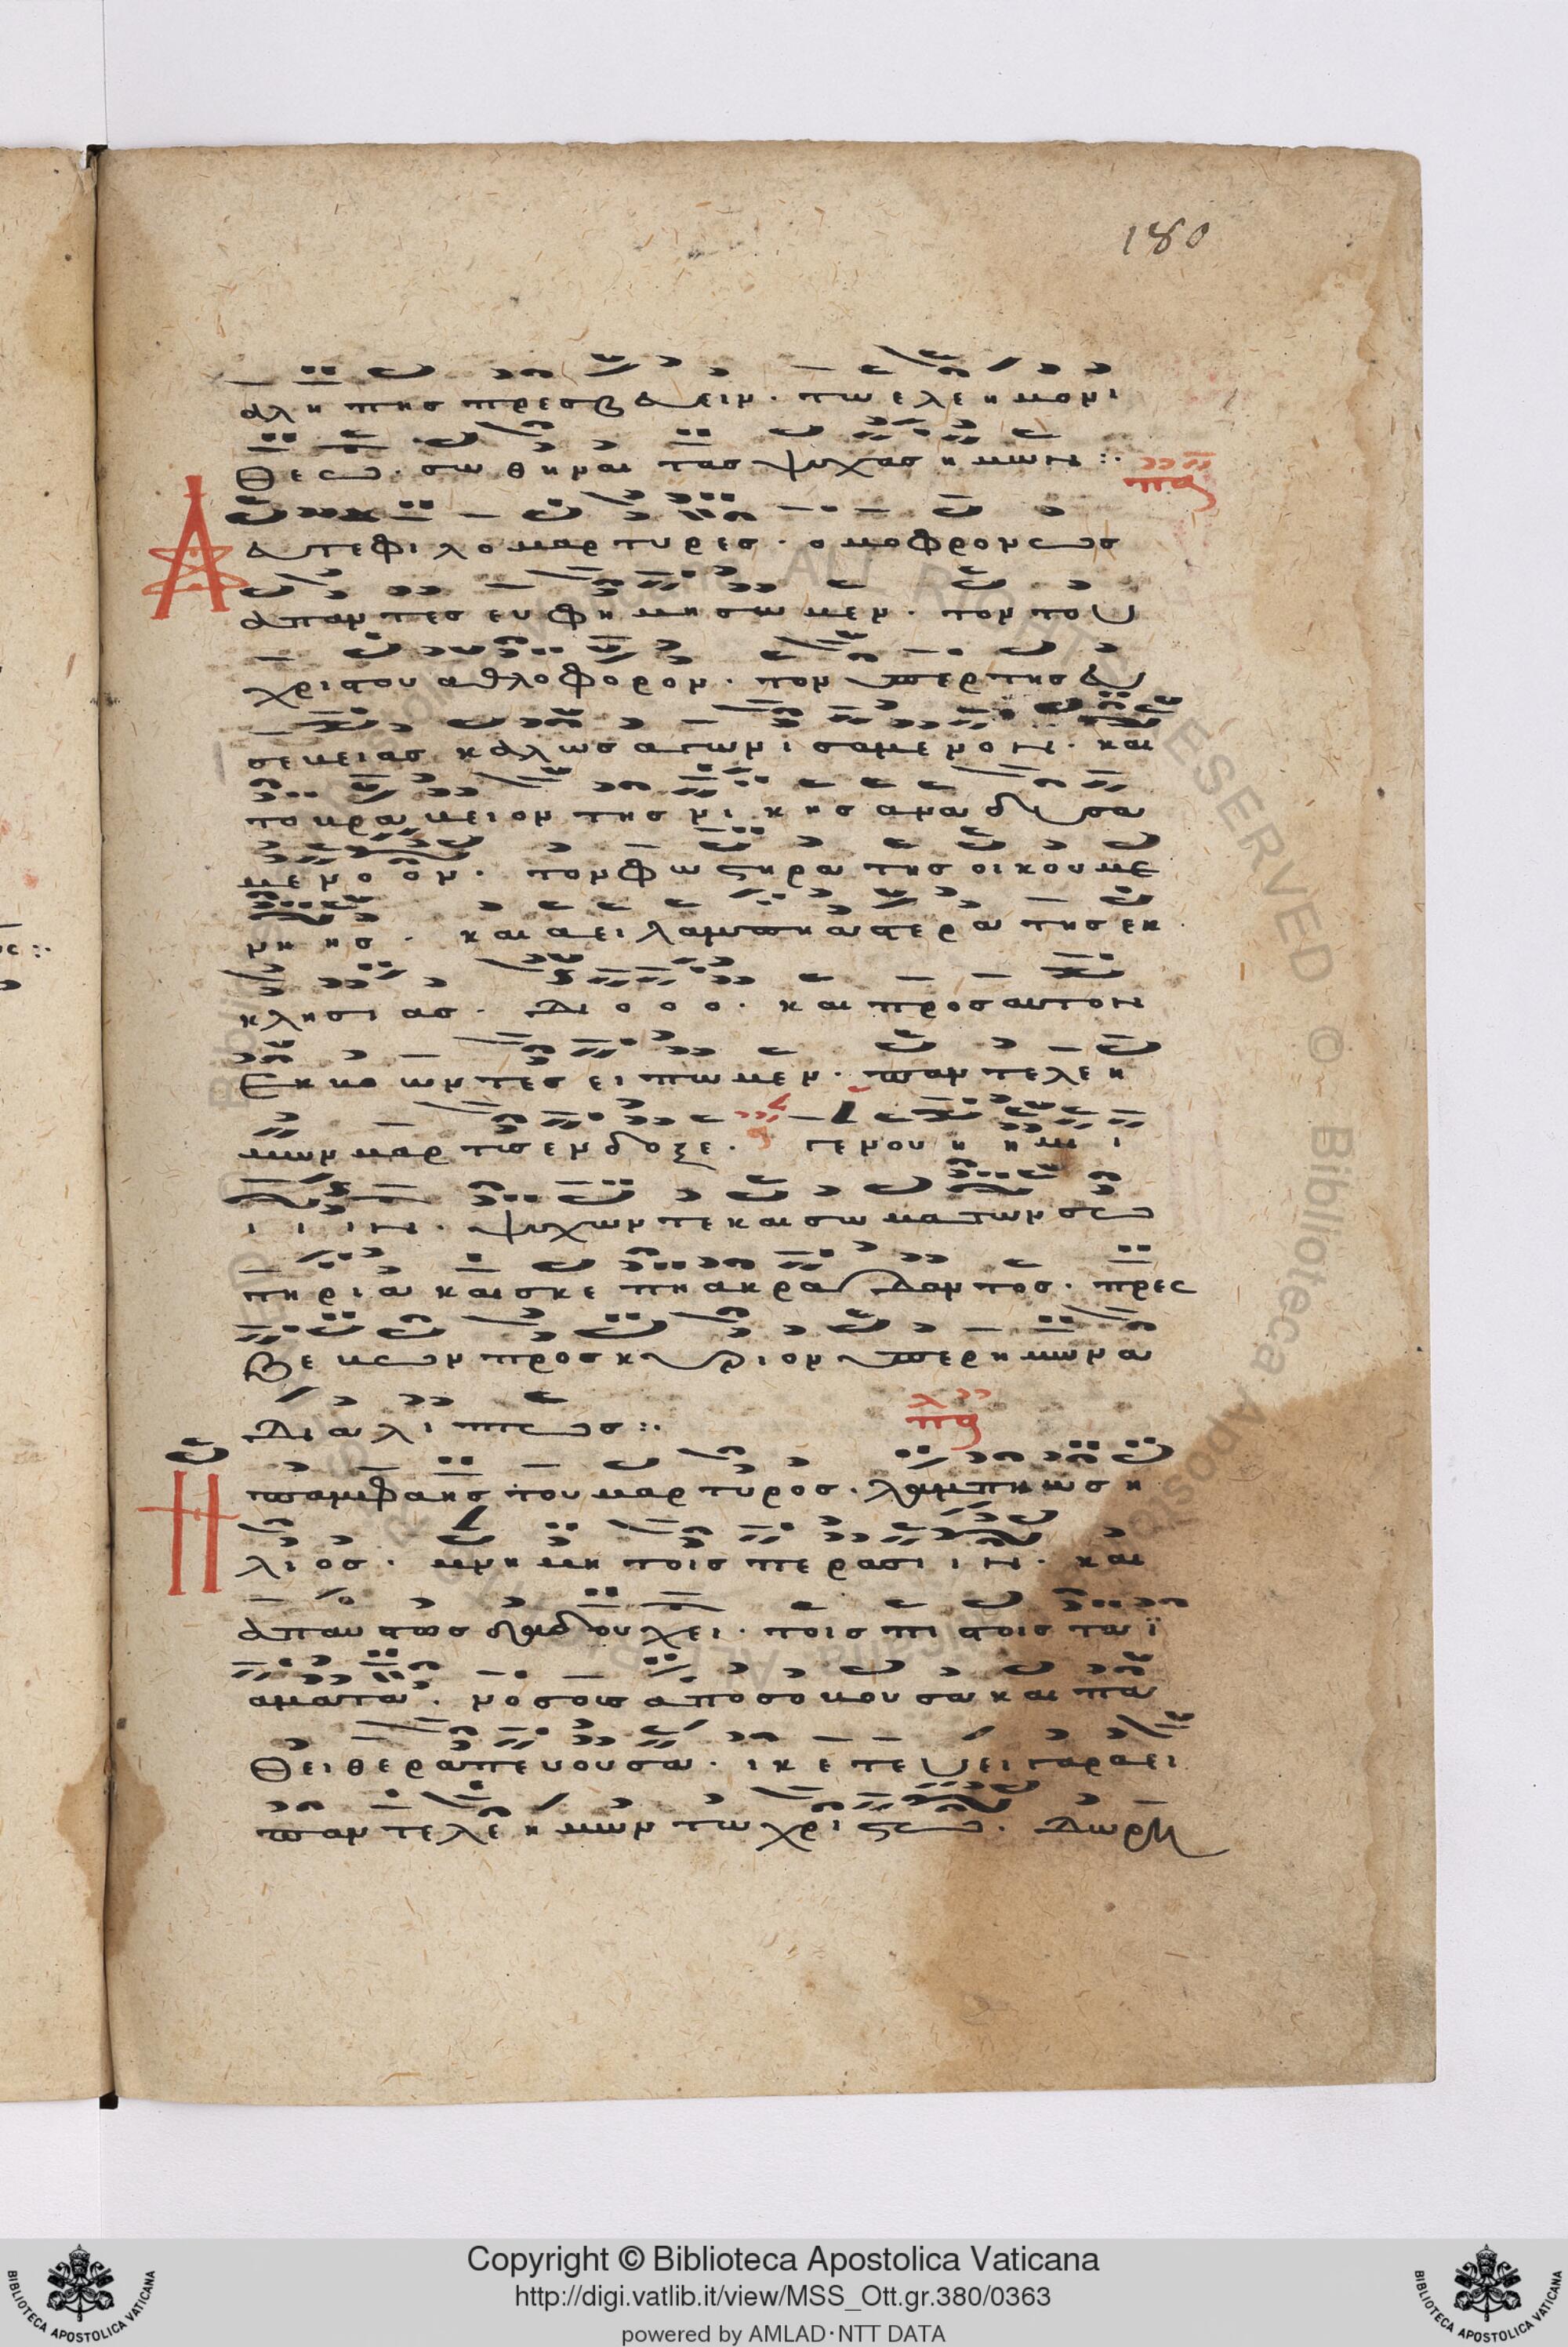 180
αλη της πρεσβευειν. τω ελεημονι
Θεω. σωθηναι τας ψυχας ημων :.
Δευτε φιλομαρτυρες. ομοφρονως
απαντες ευφημησωμεν. τον του
χριστου αθλοφορον. τον υπερ της ευ
σεβειας καλως αγωνισαμενον. και
το βραβειον της νικης αναδησα
μενοον. τον φωστηρα της οικουμε
νηης. και αειλαμπη αστερα της εκ
κλησιας. διοοο. και προς αυτον
εκβοωντες ειπωμεν. παντελεη
μων μαρτυς ενδοξε. γενου ηημι
ιιιν. ψυχων τε και σωματων σω
τηρια και σκεπη ακραδαντος. πρεσ
βευων προς κυριον υπερ ημων α
διαλιπτως :.
Η παμφαης του μαρτυρος. λαμπει ως η
λιος. μνημη τοις περασιιν. και
απαυστως δαδουχει. τοις πιστοις τα ϊ
αματα. νοσους αποσοβουσα και πα
θει θεραπευουσα. ικετευει γαρ αει
παντελεημων τω χριστω. δωρη
Copyright © Biblioteca Apostolica Vaticana
http://digi.vatlib.it/view/MSS_Ott.gr.380/0363
powered by AMLAD·NTT DATA
BIBLIOTECA APOSTOLICA VATICANA
BIBLIOTECA APOSTOLICA VATICANA